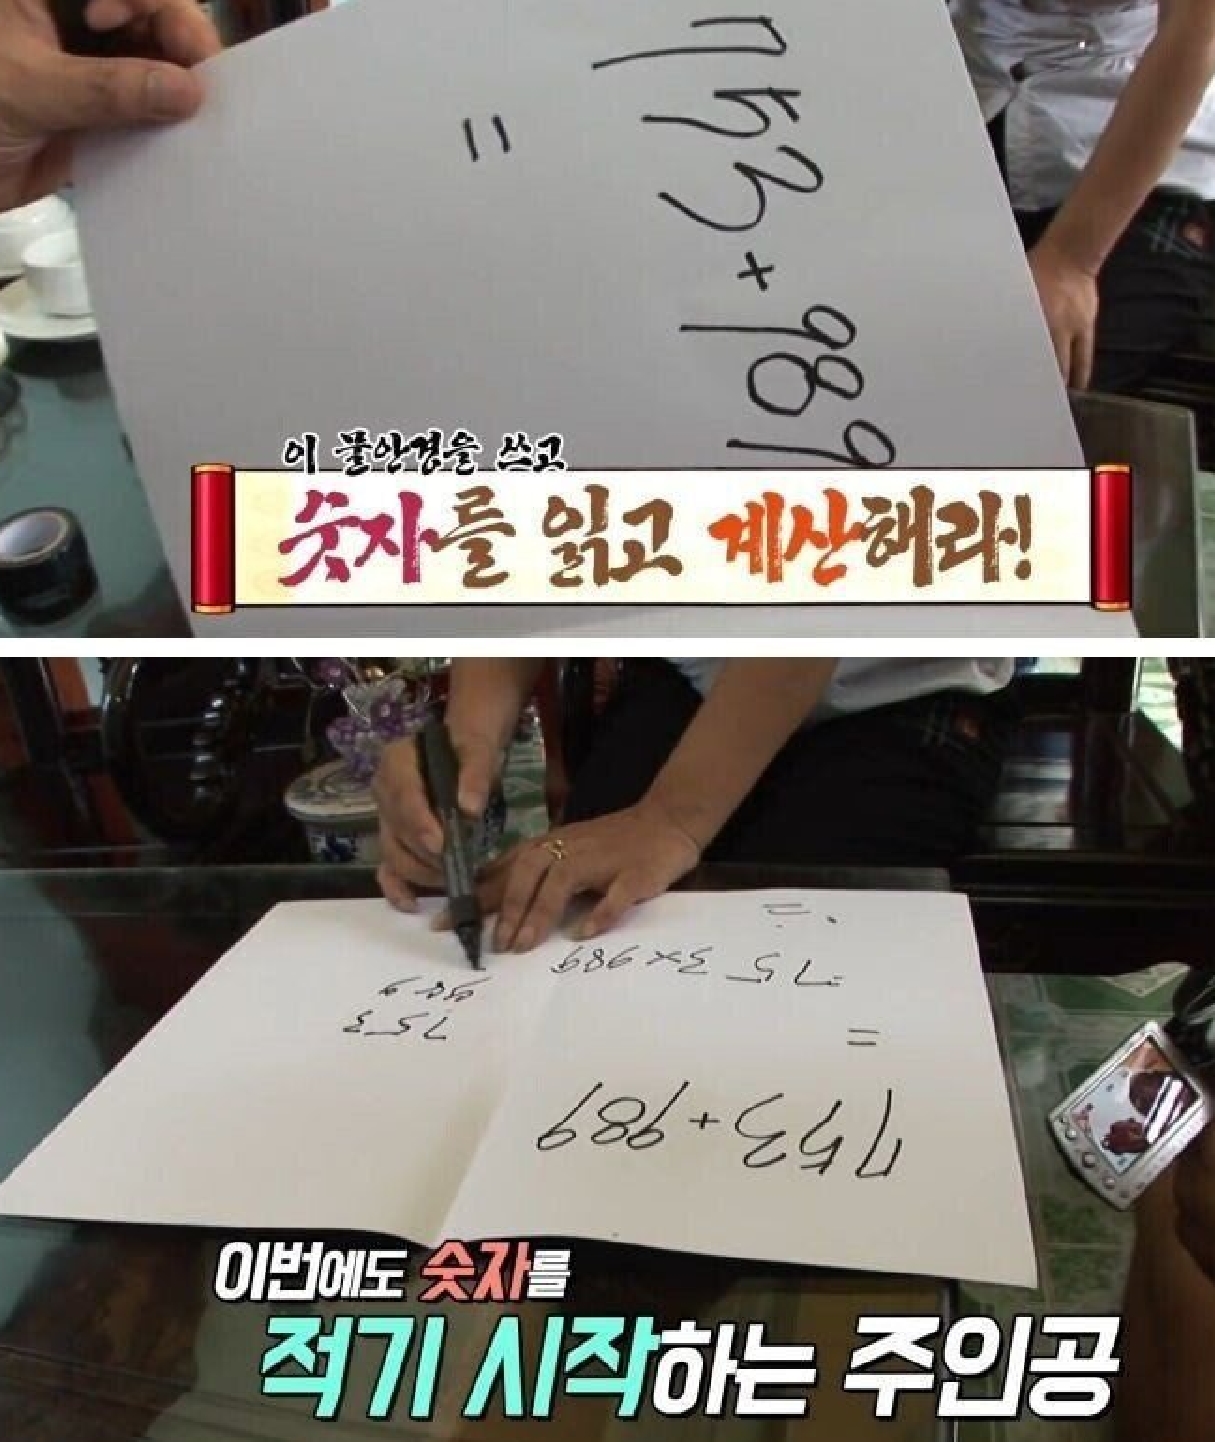 753+989
=
이 불안경을 쓰고
숫자를 읽고 계산해라!
753+989
=
753×989
753
989
이번에도 숫자를
적기 시작하는 주인공